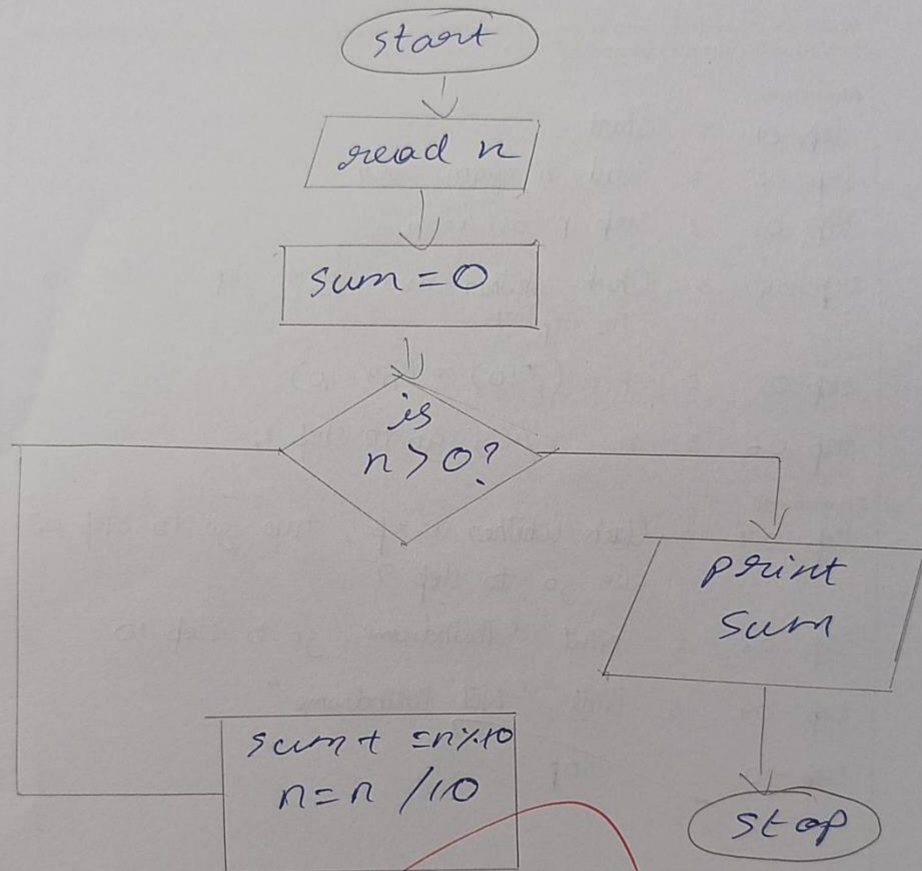 start
read n
sum = 0
is
n > 0?
print
sum
sum + = n % 10
n = n / 10
stop